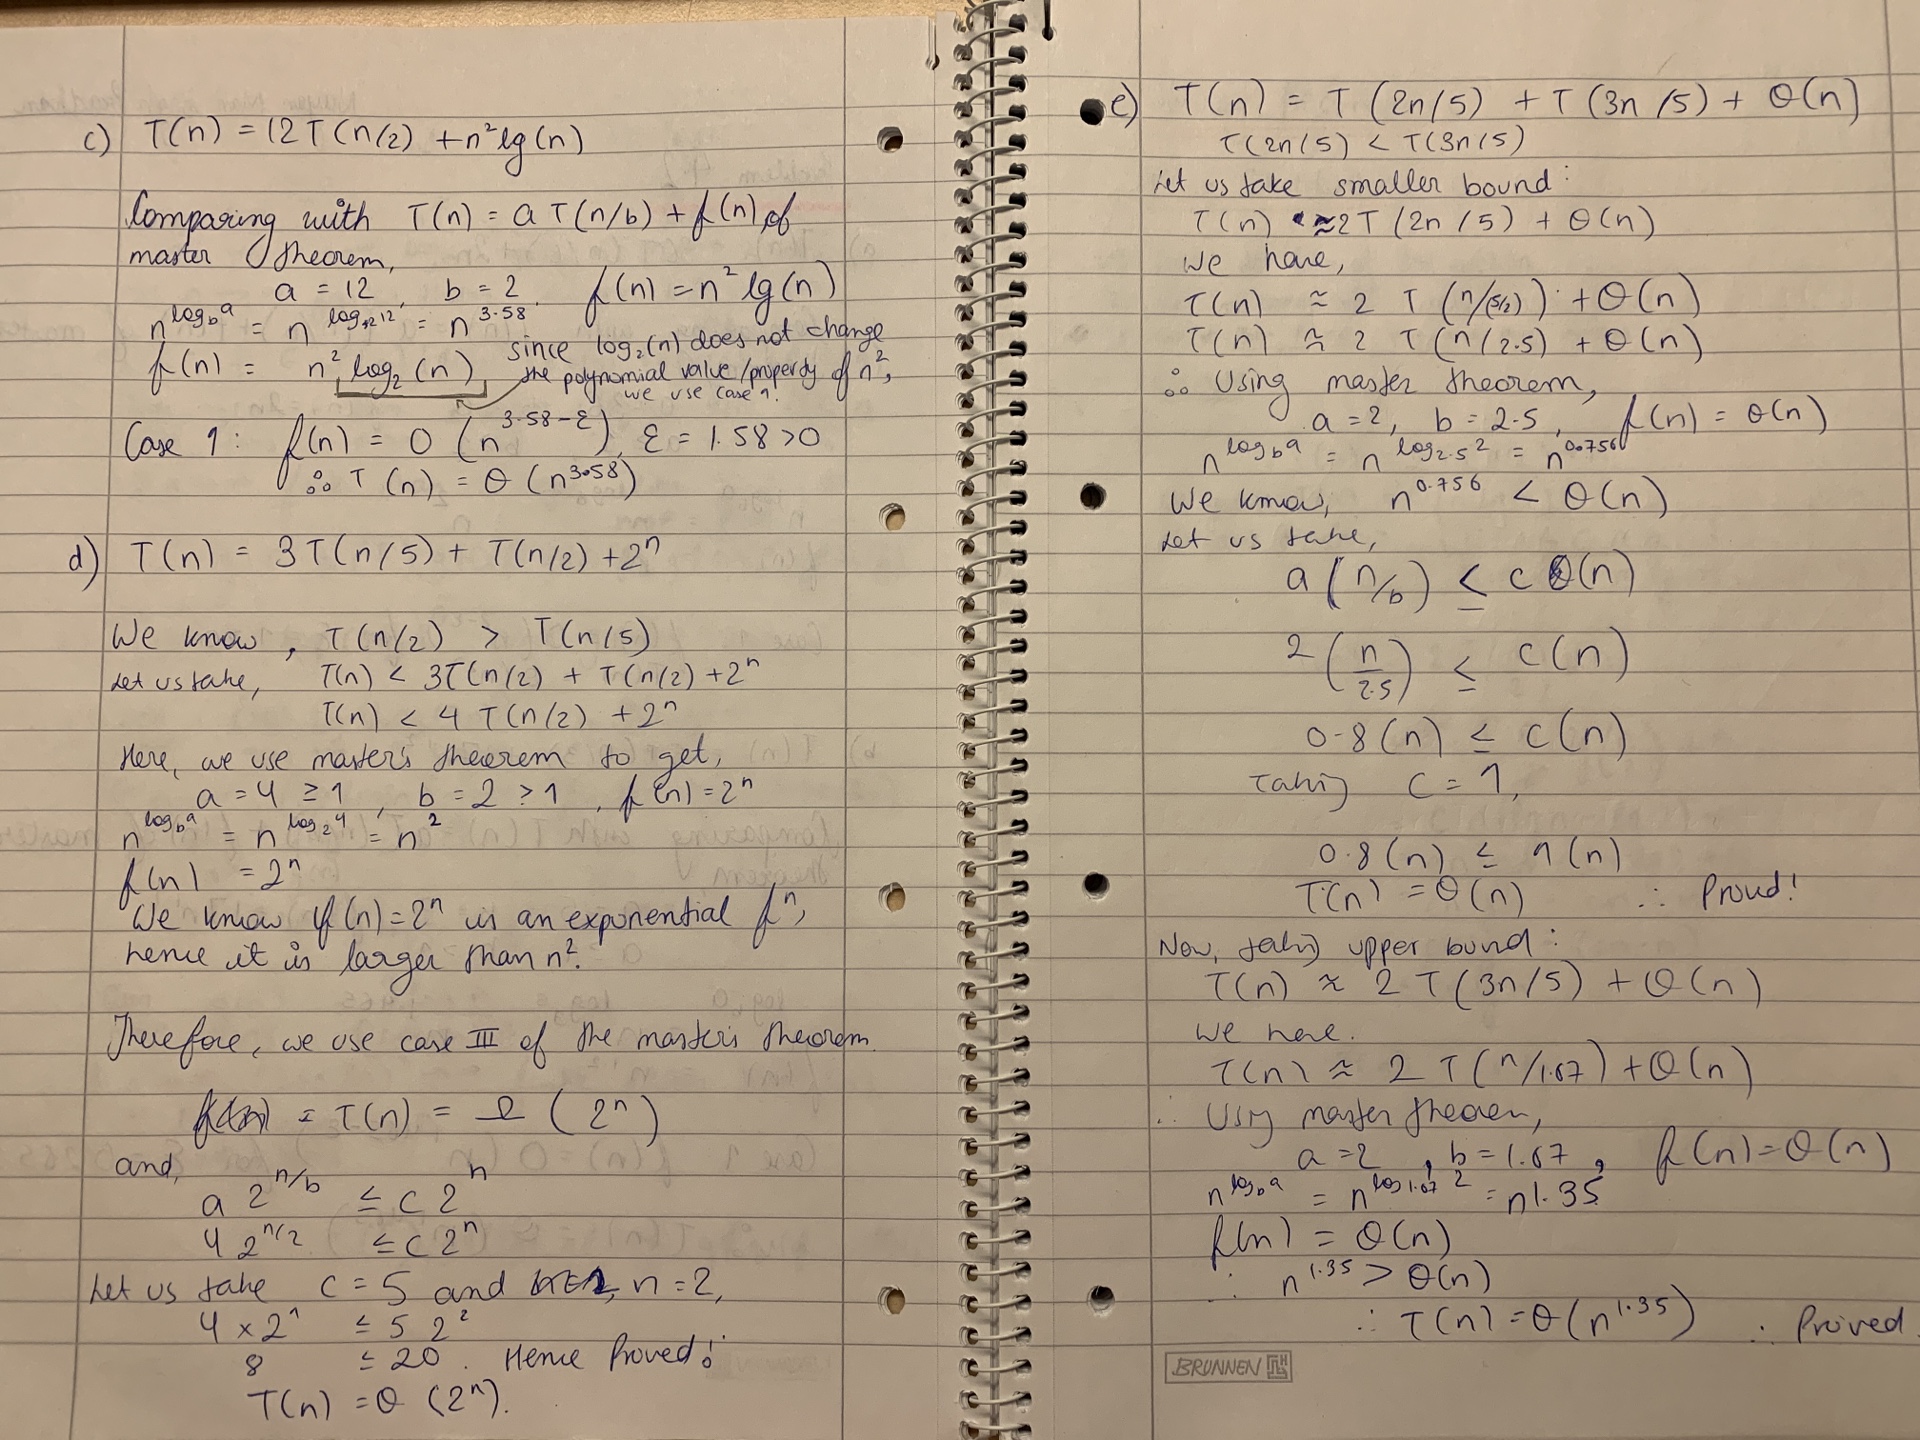 c) T(n) = 12 T(n/2) + n² lg(n)
Comparing with T(n) = a T(n/b) + f(n) of
master theorem,
a = 12, b = 2, f(n) = n² lg(n)
n^log_b a = n^log_2 12 = n^3.58
f(n) = n² log₂(n)
since log₂(n) does not change
the polynomial value/property of n²,
we use case 1.
Case 1: f(n) = O(n^3.58-ε), ε = 1.58 > 0
∴ T(n) = θ(n^3.58)
d) T(n) = 3T(n/5) + T(n/2) + 2ⁿ
We know, T(n/2) > T(n/5)
Let us take, T(n) < 3T(n/2) + T(n/2) + 2ⁿ
T(n) < 4 T(n/2) + 2ⁿ
Here, we use master's theorem to get,
a = 4 ≥ 1, b = 2 > 1, f(n) = 2ⁿ
n^log_b a = n^log_2 4 = n²
f(n) = 2ⁿ
We know f(n) = 2ⁿ is an exponential fⁿ,
hence it is larger than n².
Therefore, we use case III of the master's theorem.
= T(n) = Ω(2ⁿ)
and,
a 2^n/b ≤ c 2ⁿ
4 2^n/2 ≤ c 2ⁿ
Let us take c = 5 and n = 2,
4 × 2¹ ≤ 5 2²
8 ≤ 20. Hence Proved!
T(n) = θ(2ⁿ).
e) T(n) = T(2n/5) + T(3n/5) + θ(n)
T(2n/5) < T(3n/5)
Let us take smaller bound:
T(n) ≈ 2T(2n/5) + θ(n)
we have,
T(n) ≈ 2 T(n/(5/2)) + θ(n)
T(n) ≈ 2 T(n/2.5) + θ(n)
∴ Using master theorem,
a = 2, b = 2.5, f(n) = θ(n)
n^log_b a = n^log_2.5 2 = n^0.756
We know, n^0.756 < θ(n)
Let us take,
a(n/b) ≤ c θ(n)
2(n/2.5) ≤ c(n)
0.8(n) ≤ c(n)
Taking c = 1,
0.8(n) ≤ 1(n)
T(n) = θ(n) ∴ Proved!
Now, taking upper bound:
T(n) ≈ 2 T(3n/5) + θ(n)
we have.
T(n) ≈ 2 T(n/1.67) + θ(n)
∴ Using master theorem,
a = 2, b = 1.67, f(n) = θ(n)
n^log_b a = n^log_1.67 2 = n^1.35
f(n) = θ(n)
∴ n^1.35 > θ(n)
∴ T(n) = θ(n^1.35) ∴ Proved.
BRUNNEN